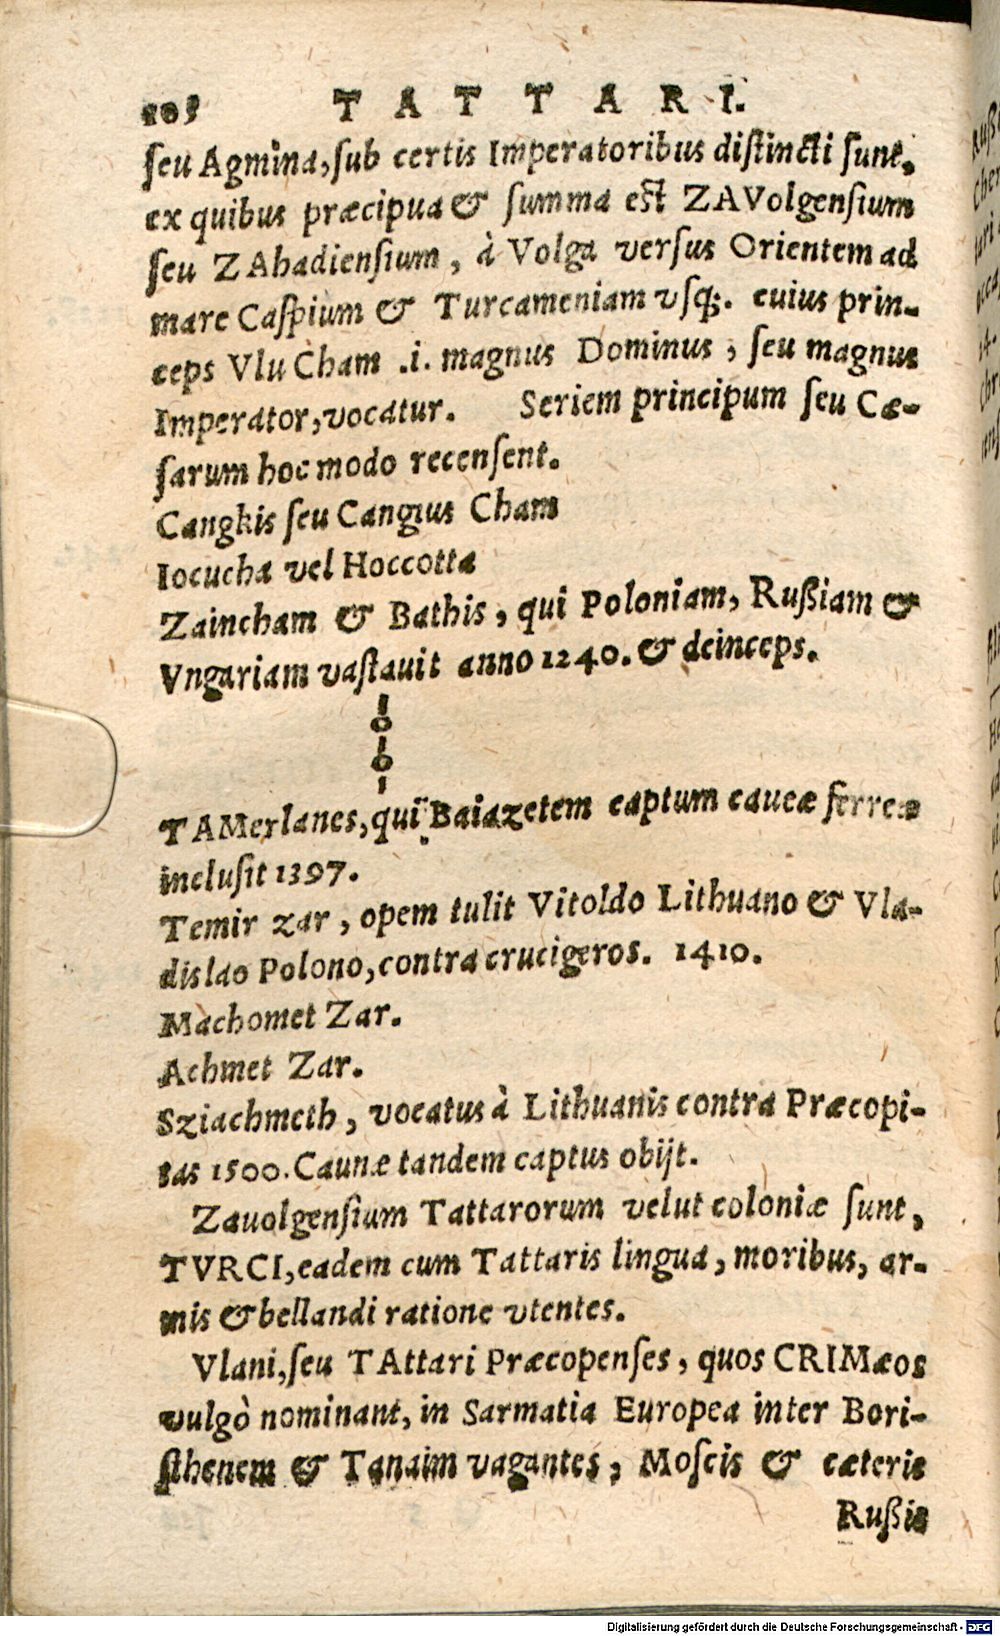 TATTARI.
ſeu Agmina, ſub certis Imperatoribus diſtincti ſunt,
ex quibus præcipua & ſumma eſt ZAVolgenſium
ſeu ZAhadienſium, à Volga verſus Orientem ad
mare Caſpium & Turcameniam vſq;. cuius prin-
ceps Vlu Cham .i. magnus Dominus, ſeu magnus
Imperator, vocatur. Seriem principum ſeu Cæ-
ſarum hoc modo recenſent.
Cangkis ſeu Cangius Cham
Iocucha vel Hoccotta
Zaincham & Bathis, qui Poloniam, Rußiam &
Vngariam vaſtauit anno 1240. & deinceps.
TAMerlanes, qui Baiazetem captum caueæ ferreæ
incluſit 1397.
Temir zar, opem tulit Vitoldo Lithuano & Vla-
dislao Polono, contra crucigeros. 1410.
Machomet Zar.
Achmet Zar.
Sziachmeth, vocatus à Lithuanis contra Præcopi-
tas 1500. Caunæ tandem captus obijt.
Zauolgenſium Tattarorum velut coloniæ ſunt,
TVRCI, eadem cum Tattaris lingua, moribus, ar-
mis & bellandi ratione vtentes.
Vlani, ſeu TAttari Præcopenſes, quos CRIMæos
vulgò nominant, in Sarmatia Europea inter Bori-
ſthenem & Tanaim vagantes, Moſcis & cæteris
Rußis
Digitalisierung gefördert durch die Deutsche Forschungsgemeinschaft - DFG